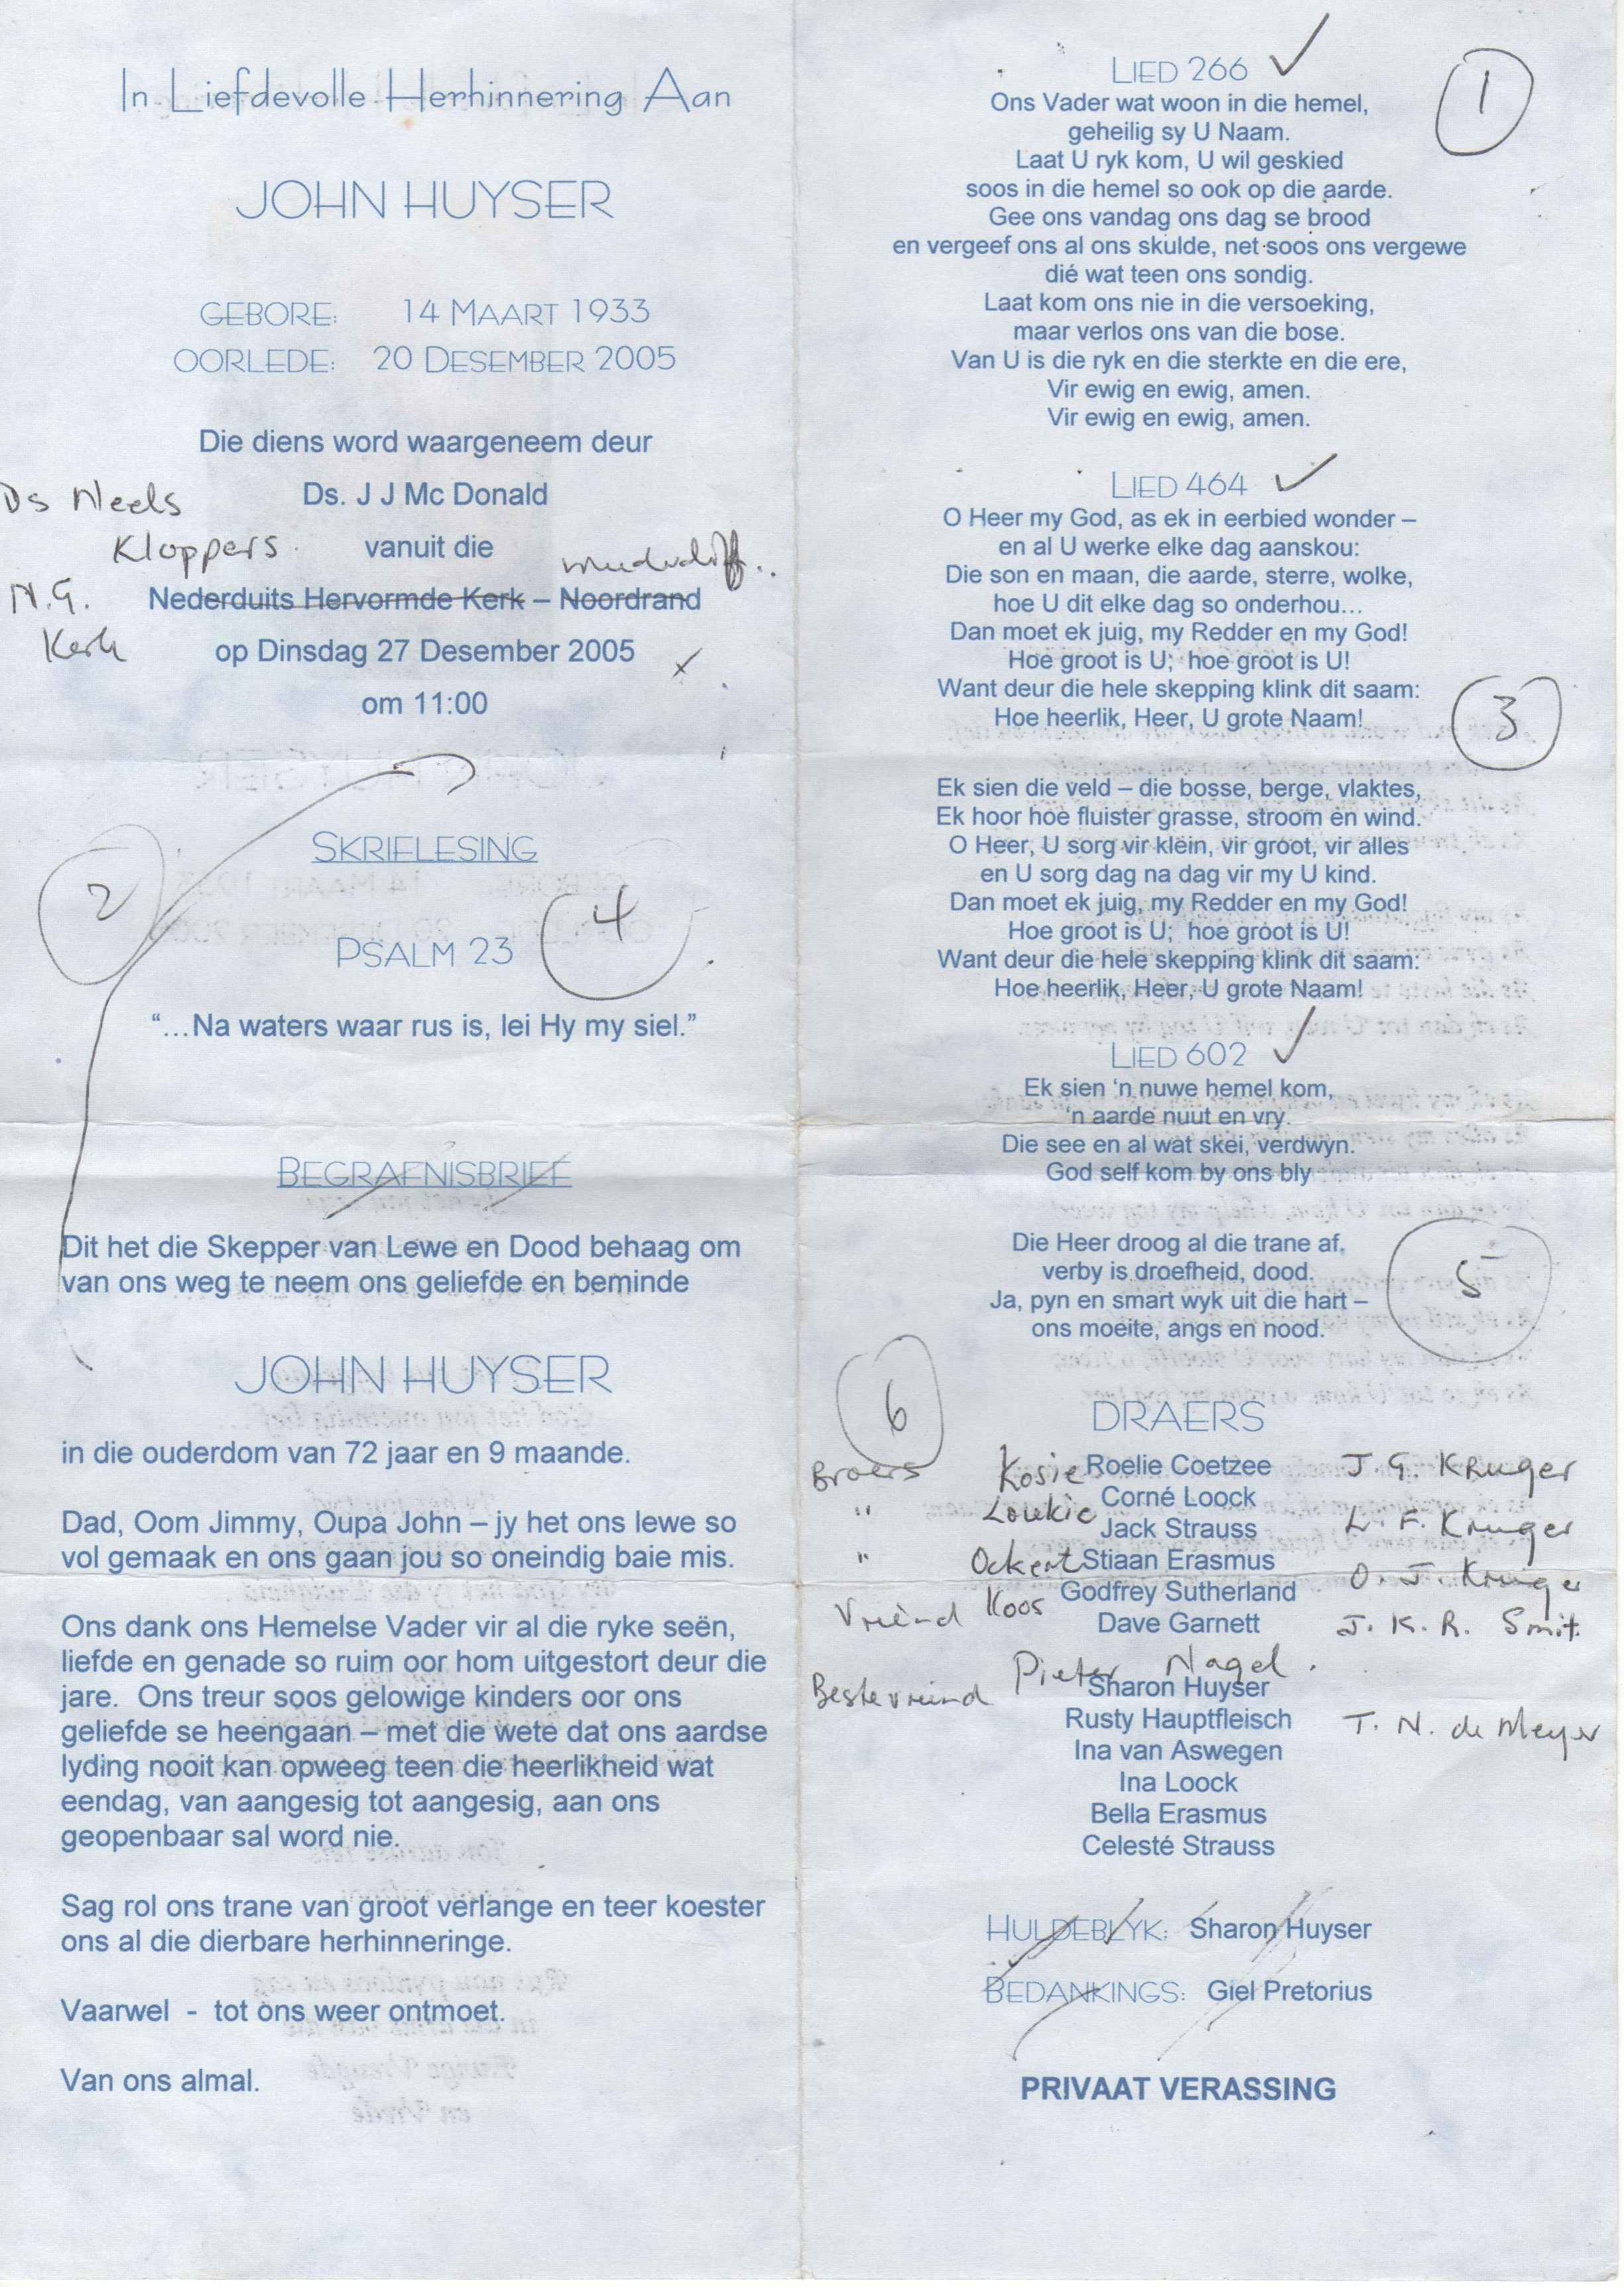 In Liefdevolle Herhinnering Aan
JOHN HUYSER
GEBORE: 14 MAART 1933
OORLEDE: 20 DESEMBER 2005
Die diens word waargeneem deur
Ds Neels Ds. J J Mc Donald
Kloppers. vanuit die
N.G. Nederduits Hervormde Kerk – Noordrand
Kerk op Dinsdag 27 Desember 2005 x
om 11:00
2
SKRIFLESING
4
PSALM 23
“…Na waters waar rus is, lei Hy my siel.”
BEGRAFNISBRIEF
Dit het die Skepper van Lewe en Dood behaag om
van ons weg te neem ons geliefde en beminde
JOHN HUYSER
in die ouderdom van 72 jaar en 9 maande.
Dad, Oom Jimmy, Oupa John – jy het ons lewe so
vol gemaak en ons gaan jou so oneindig baie mis.
Ons dank ons Hemelse Vader vir al die ryke seën,
liefde en genade so ruim oor hom uitgestort deur die
jare. Ons treur soos gelowige kinders oor ons
geliefde se heengaan – met die wete dat ons aardse
lyding nooit kan opweeg teen die heerlikheid wat
eendag, van aangesig tot aangesig, aan ons
geopenbaar sal word nie.
Sag rol ons trane van groot verlange en teer koester
ons al die dierbare herhinneringe.
Vaarwel - tot ons weer ontmoet.
Van ons almal.
LIED 266 ✓
1
Ons Vader wat woon in die hemel,
geheilig sy U Naam.
Laat U ryk kom, U wil geskied
soos in die hemel so ook op die aarde.
Gee ons vandag ons dag se brood
en vergeef ons al ons skulde, net soos ons vergewe
dié wat teen ons sondig.
Laat kom ons nie in die versoeking,
maar verlos ons van die bose.
Van U is die ryk en die sterkte en die ere,
Vir ewig en ewig, amen.
Vir ewig en ewig, amen.
LIED 464 ✓
O Heer my God, as ek in eerbied wonder –
en al U werke elke dag aanskou:
Die son en maan, die aarde, sterre, wolke,
hoe U dit elke dag so onderhou…
Dan moet ek juig, my Redder en my God!
Hoe groot is U; hoe groot is U!
Want deur die hele skepping klink dit saam:
Hoe heerlik, Heer, U grote Naam!
3
Ek sien die veld – die bosse, berge, vlaktes,
Ek hoor hoe fluister grasse, stroom en wind.
O Heer, U sorg vir klein, vir groot, vir alles
en U sorg dag na dag vir my U kind.
Dan moet ek juig, my Redder en my God!
Hoe groot is U; hoe groot is U!
Want deur die hele skepping klink dit saam:
Hoe heerlik, Heer, U grote Naam!
LIED 602 ✓
Ek sien ‘n nuwe hemel kom,
‘n aarde nuut en vry.
Die see en al wat skei, verdwyn.
God self kom by ons bly
Die Heer droog al die trane af.
verby is droefheid, dood.
Ja, pyn en smart wyk uit die hart –
ons moeite, angs en nood.
5
6
DRAERS
Broers Kosie Roelie Coetzee J G. Kruger
" Loukie Corné Loock
Jack Strauss L. F. Kruger
" Ockert Stiaan Erasmus O. J. Kruger
Vriend Koos Godfrey Sutherland
Dave Garnett J. K. R. Smit.
Pieter Nagel.
Bestevriend Sharon Huyser
Rusty Hauptfleisch T. N. de Meyer
Ina van Aswegen
Ina Loock
Bella Erasmus
Celesté Strauss
HULDEBLYK: Sharon Huyser
BEDANKINGS: Giel Pretorius
PRIVAAT VERASSING